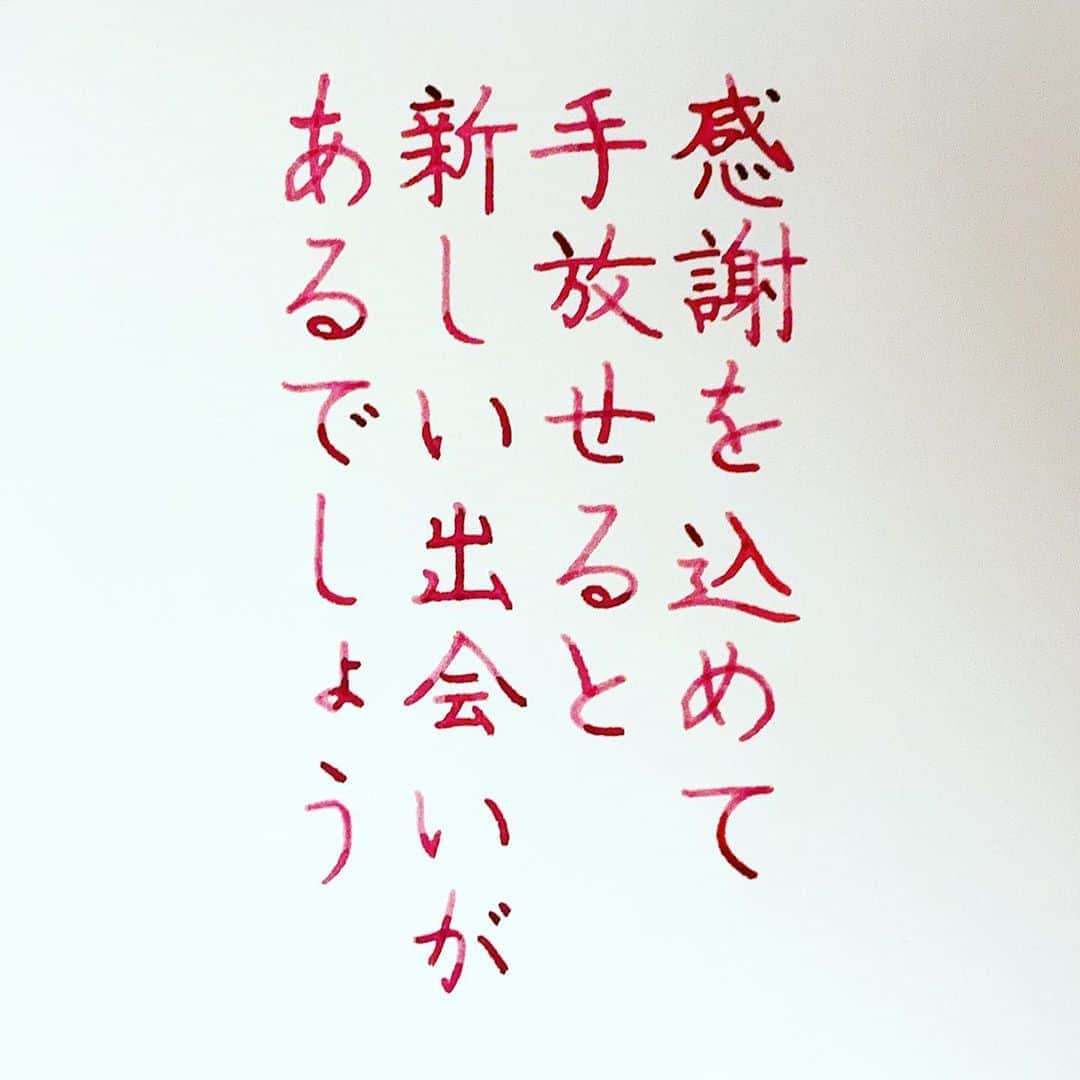 感謝を込めて
手放せると
新しい出会いが
あるでしょう